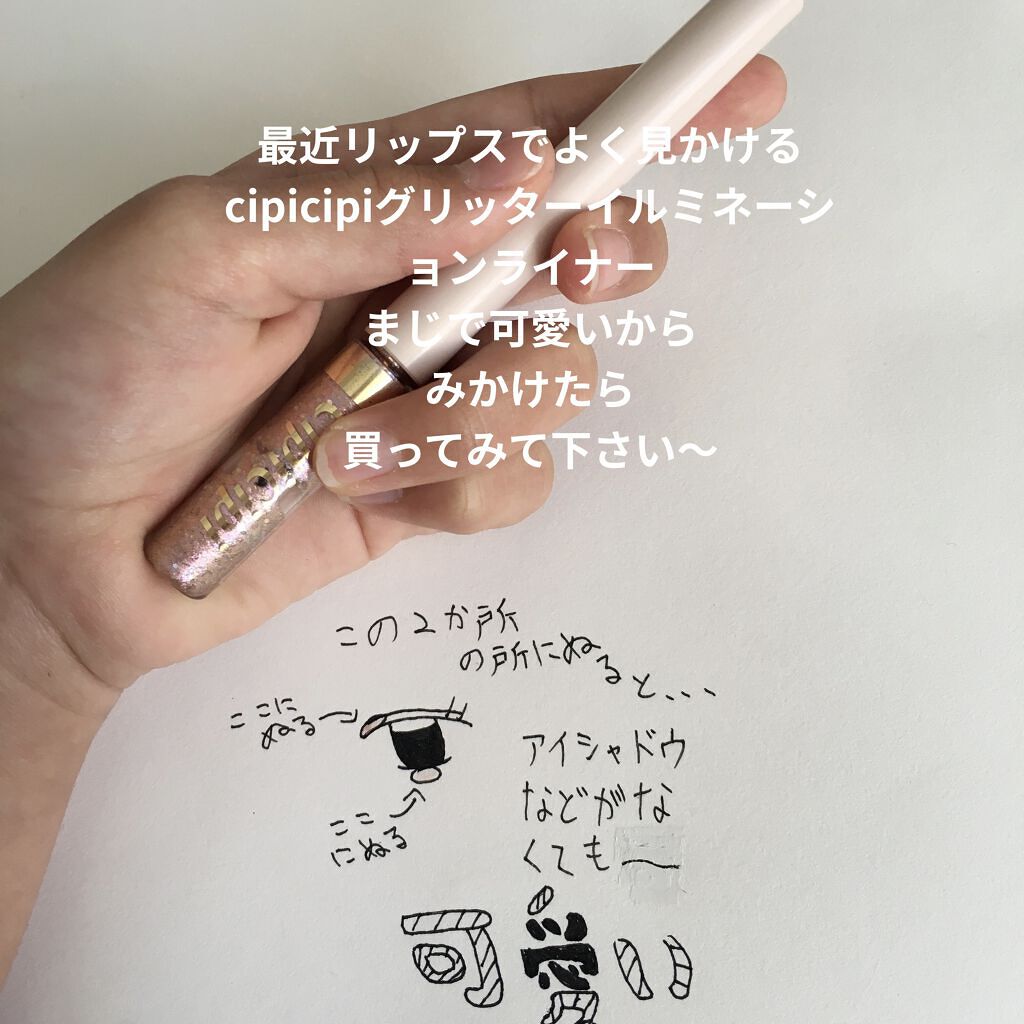 最近リップスでよく見かける
cipicipiグリッターイルミネーシ
ョンライナー
まじで可愛いから
みかけたら
買ってみて下さい〜
cipicipi
この2か所
の所にぬると、、、
ここに
ぬる
ここ
にぬる
アイシャドウ
などがな
くても〜
可愛い